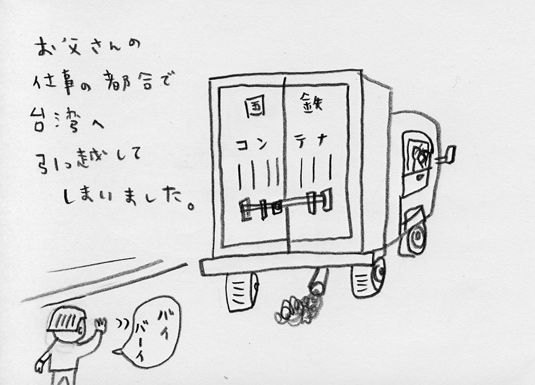 お父さんの
仕事の都合で
台湾へ
引っ越して
しまいました。
国鉄
コンテナ
バイ
バーイ